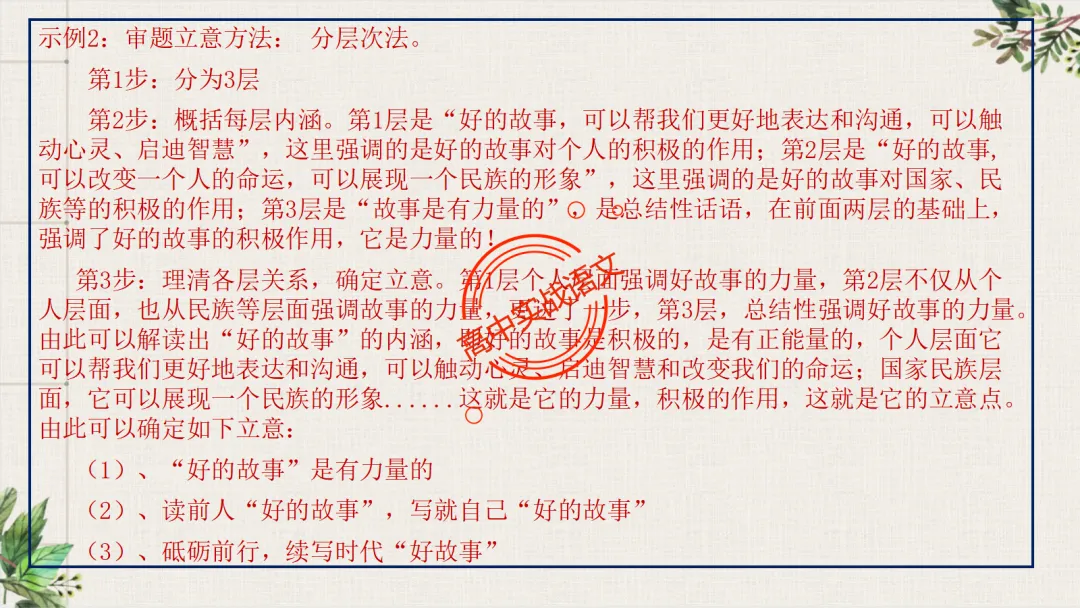 示例2：审题立意方法： 分层次法。
第1步：分为3层
第2步：概括每层内涵。第1层是“好的故事，可以帮我们更好地表达和沟通，可以触
动心灵、启迪智慧”，这里强调的是好的故事对个人的积极的作用；第2层是“好的故事，
可以改变一个人的命运，可以展现一个民族的形象”，这里强调的是好的故事对国家、民
族等的积极的作用；第3层是“故事是有力量的”，是总结性话语，在前面两层的基础上，
强调了好的故事的积极作用，它是力量的！
第3步：理清各层关系，确定立意。第1层个人层面强调好故事的力量，第2层不仅从个
人层面，也从民族等层面强调故事的力量，更进了一步，第3层，总结性强调好故事的力量。
由此可以解读出“好的故事”的内涵，即好的故事是积极的，是有正能量的，个人层面它
可以帮我们更好地表达和沟通，可以触动心灵、启迪智慧和改变我们的命运；国家民族层
面，它可以展现一个民族的形象......这就是它的力量，积极的作用，这就是它的立意点。
由此可以确定如下立意：
（1）、“好的故事”是有力量的
（2）、读前人“好的故事”，写就自己“好的故事”
（3）、砥砺前行，续写时代“好故事”
高中实战语文